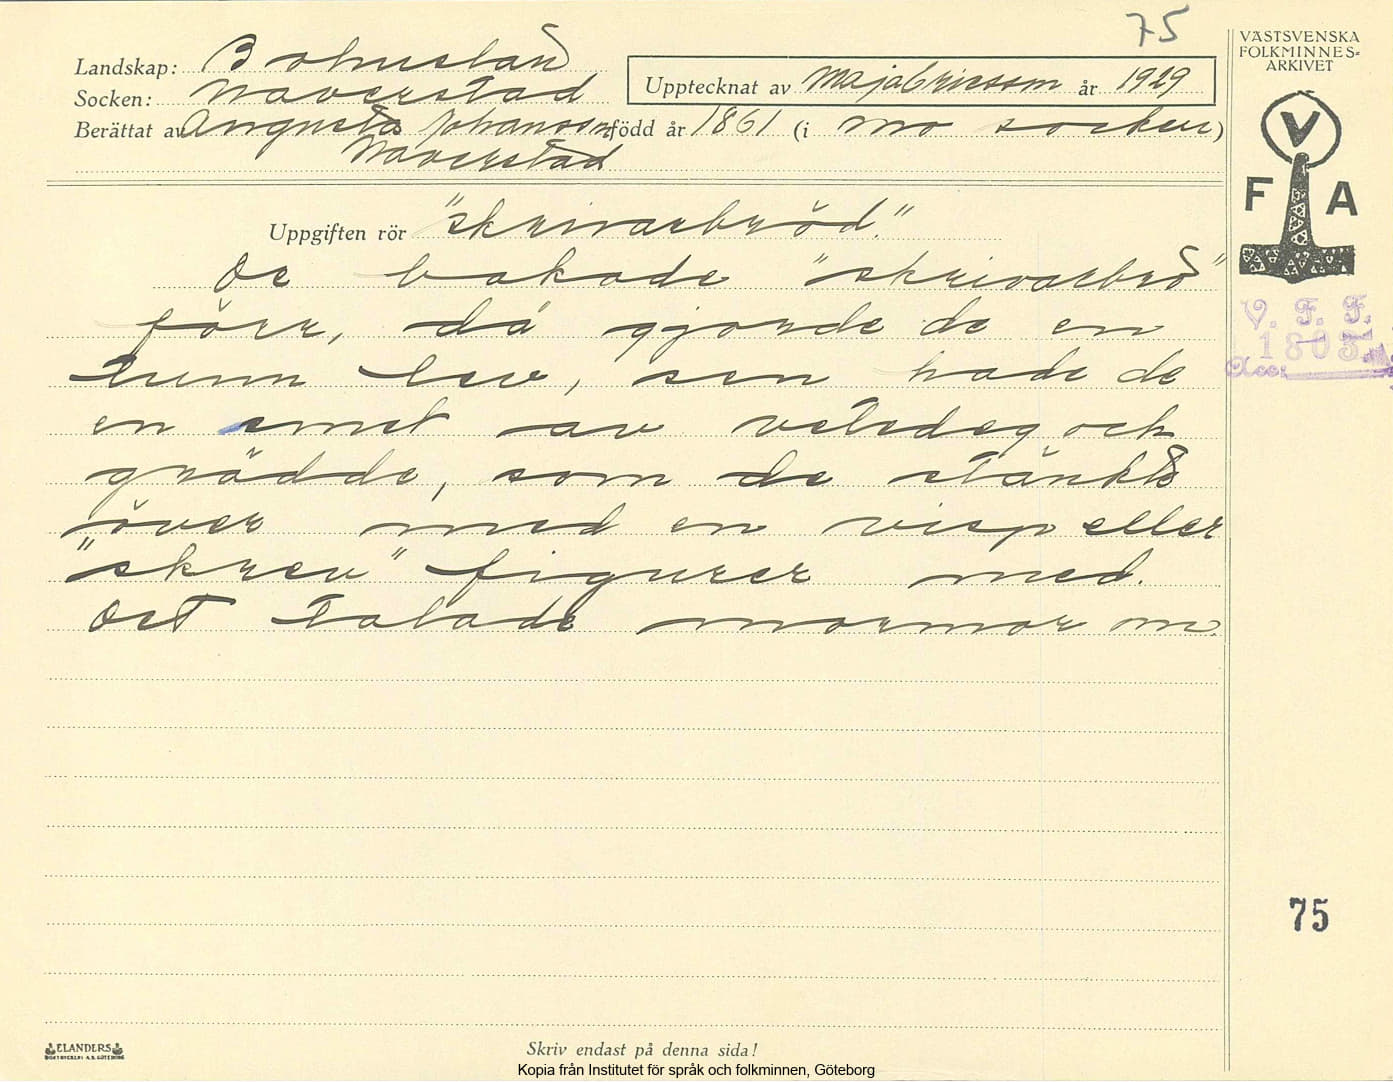 75
VÄSTSVENSKA
FOLKMINNES-
ARKIVET
Landskap: Bohuslän
Upptecknat av Maja Ericsson år 1929
Socken: Naverstad
Berättat av Augusta Johansson född år 1861 (i Mo socken)
Naverstad
V
F A
Uppgiften rör "skrivarbröd."
De bakade "skrivarbrö"
förr, då gjorde de en
tunn lev, sen hade de
en smet av vetedeg och
grädde, som de stänkte
över med en visp eller
"skrev" figurer med.
Det talade mormor om.
V. F. F.
1803
Acc:
75
ELANDERS
BOKTRYCKERI A.B. GÖTEBORG
Skriv endast på denna sida!
Kopia från Institutet för språk och folkminnen, Göteborg